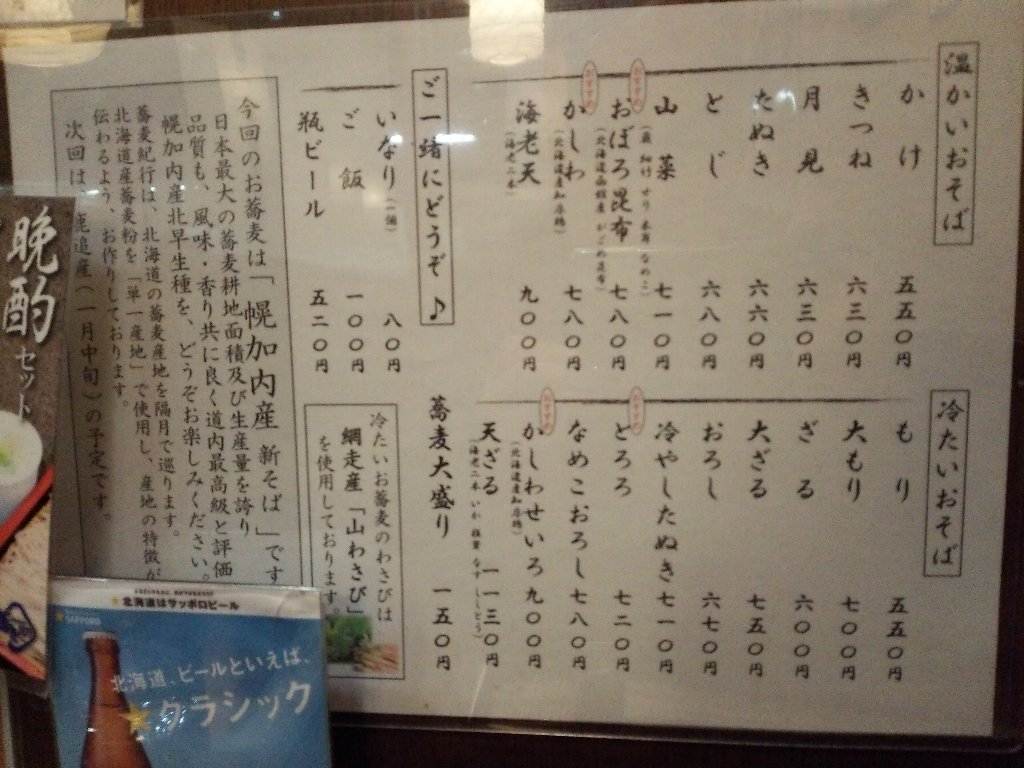 温かいおそば
かけ 五五〇円
きつね 六三〇円
月見 六三〇円
たぬき 六六〇円
とじ 六八〇円
山菜 七一〇円
おすすめ
おぼろ昆布 七八〇円
(北海道函館産 がごめ昆布)
おすすめ
かしわ 七八〇円
(北海道産知床鶏)
海老天 九〇〇円
(海老二本)
冷たいおそば
もり 五五〇円
大もり 七〇〇円
ざる 六〇〇円
大ざる 七五〇円
おろし 六七〇円
冷やしたぬき 七一〇円
おすすめ
とろろ 七二〇円
なめこおろし 七八〇円
おすすめ
かしわせいろ 九〇〇円
(北海道産知床鶏)
天ざる 一一三〇円
蕎麦大盛り 一五〇円
ご一緒にどうぞ♪
いなり(一個) 八〇円
ご飯 一〇〇円
瓶ビール 五二〇円
冷たいお蕎麦のわさびは
網走産「山わさび」
を使用しております。
今回のお蕎麦は「幌加内産 新そば」です
日本最大の蕎麦耕地面積及び生産量を誇り
品質も、風味・香り共に良く道内最高級と評価
幌加内産北早生種を、どうぞお楽しみください。
蕎麦紀行は、北海道の蕎麦産地を隔月で巡ります。
北海道産蕎麦粉を「単一産地」で使用し、産地の特徴が
伝わるよう、お作りしております。
次回は、鹿追産(一月中旬)の予定です。
晩酌セット
★北海道はサッポロビール
SAPPORO
北海道、ビールといえば、
★クラシック